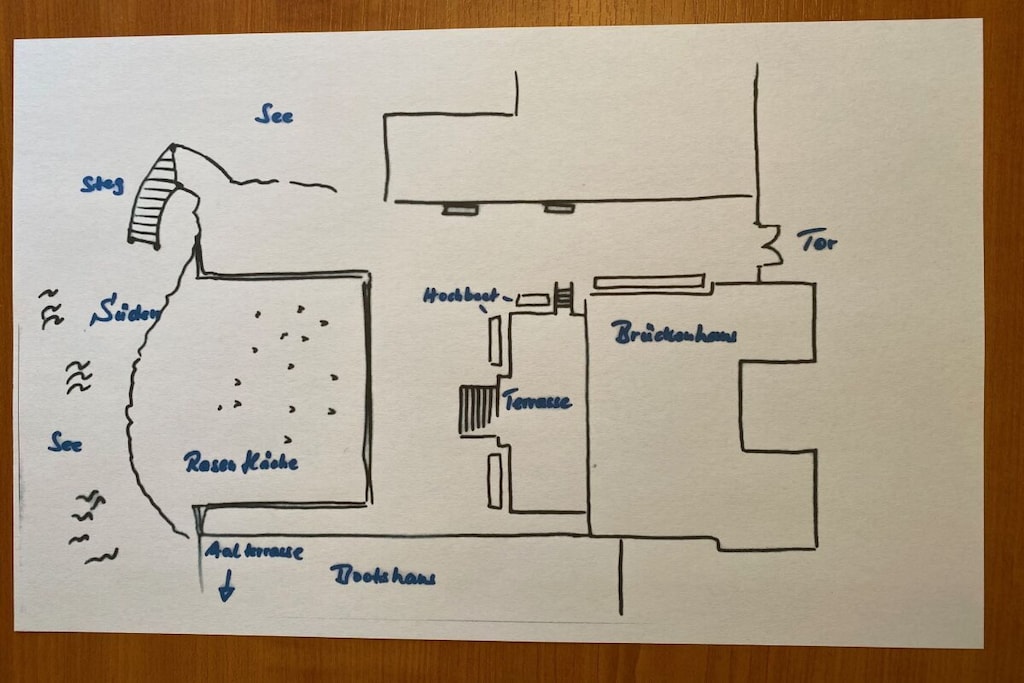 See
Steg
Tor
Hochbeet
Süden
Brückenhaus
Terrasse
See
Rasenfläche
Aalterrasse
Bootshaus